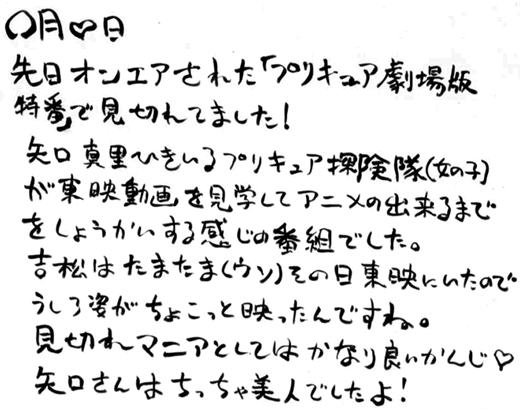 ○月♡日
先日オンエアされた「プリキュア劇場版
特番」で見切れてました！
矢口真里ひきいるプリキュア探険隊(女の子)
が東映動画を見学してアニメの出来るまで
をしょうかいする感じの番組でした。
吉松はたまたま(ウソ)その日東映にいたので
うしろ姿がちょこっと映ったんですね。
見切れマニアとしてはかなり良いかんじ♡
矢口さんはちっちゃ美人でしたよ！